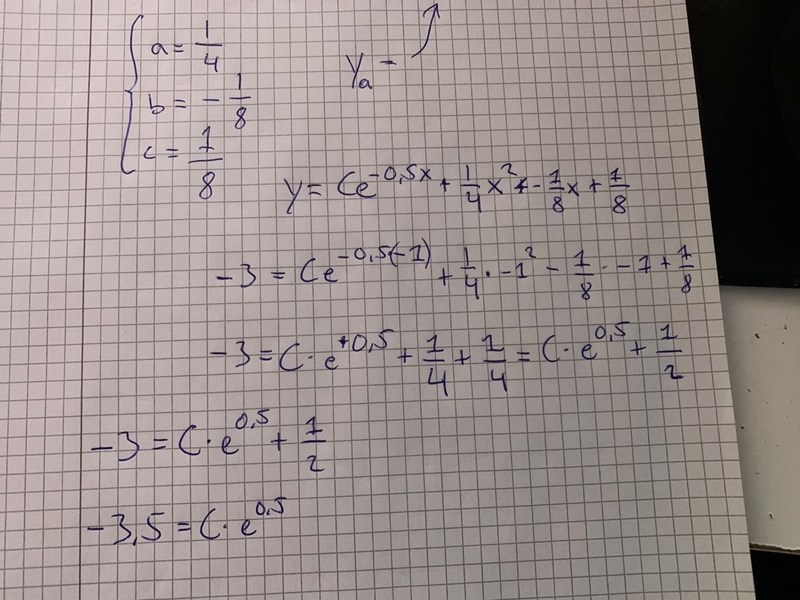 a = 1/4
yₐ =
b = - 1/8
c = 1/8
y = Ce^(-0,5x) + 1/4 x² - 1/8 x + 1/8
-3 = Ce^(-0,5(-1)) + 1/4 · -1² - 1/8 · -1 + 1/8
-3 = C · e^(+0,5) + 1/4 + 1/4 = C · e^(0,5) + 1/2
-3 = C · e^(0,5) + 1/2
-3,5 = C · e^(0,5)